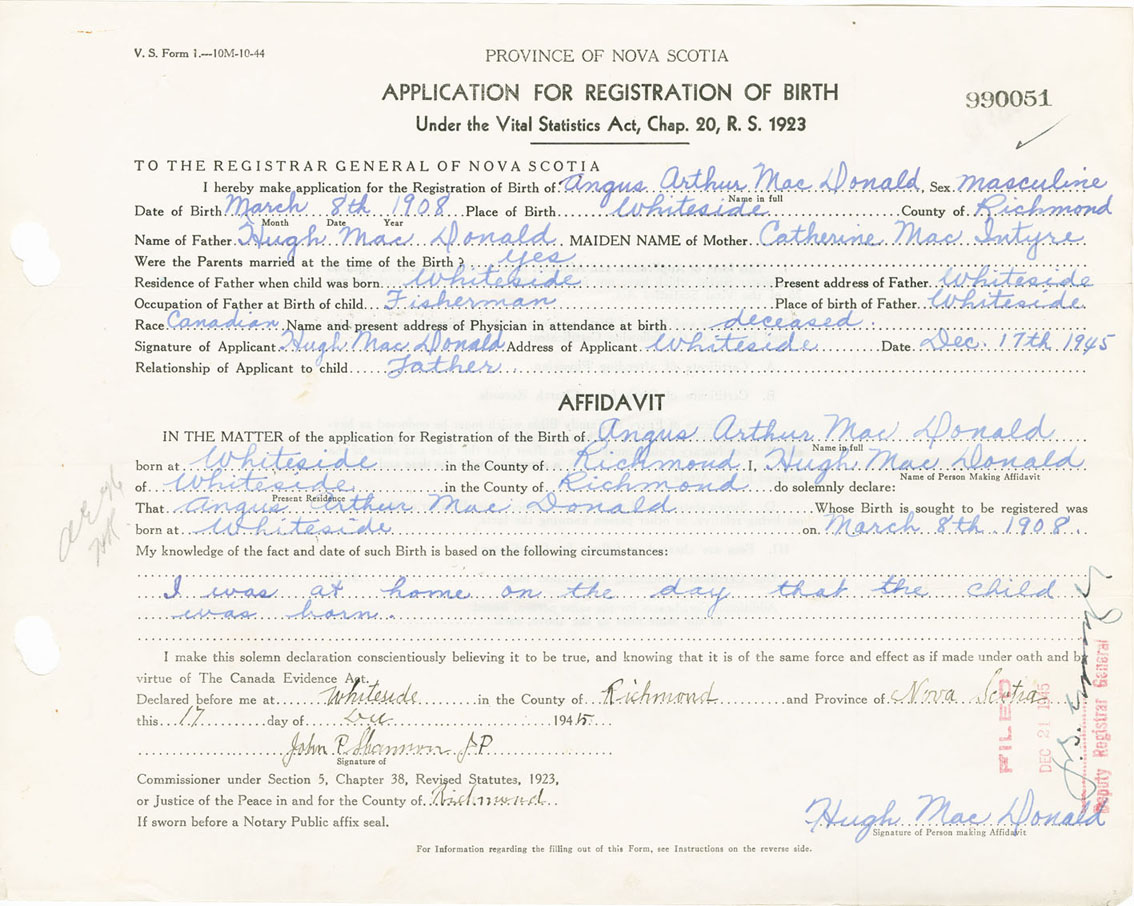 V. S. Form 1.—10M-10-44
PROVINCE OF NOVA SCOTIA
APPLICATION FOR REGISTRATION OF BIRTH
990051
Under the Vital Statistics Act, Chap. 20, R. S. 1923
TO THE REGISTRAR GENERAL OF NOVA SCOTIA
I hereby make application for the Registration of Birth of Angus Arthur Mac Donald, Sex masculine
Name in full
Date of Birth March 8th 1908 Place of Birth Whiteside County of Richmond
Month Date Year
Name of Father Hugh Mac Donald. MAIDEN NAME of Mother Catherine Mac Intyre
Were the Parents married at the time of the Birth? yes
Residence of Father when child was born Whiteside Present address of Father Whiteside
Occupation of Father at Birth of child Fisherman Place of birth of Father Whiteside
Race Canadian Name and present address of Physician in attendance at birth deceased.
Signature of Applicant Hugh Mac Donald Address of Applicant Whiteside Date Dec. 17th 1945
Relationship of Applicant to child Father
AFFIDAVIT
IN THE MATTER of the application for Registration of the Birth of Angus Arthur Mac Donald
Name in full
born at Whiteside in the County of Richmond I, Hugh Mac Donald
Name of Person Making Affidavit
of Whiteside in the County of Richmond do solemnly declare:
Present Residence
That Angus Arthur Mac Donald Whose Birth is sought to be registered was
born at Whiteside on March 8th 1908.
My knowledge of the fact and date of such Birth is based on the following circumstances:
I was at home on the day that the child
was born.
I make this solemn declaration conscientiously believing it to be true, and knowing that it is of the same force and effect as if made under oath and by
virtue of The Canada Evidence Act.
Declared before me at Whiteside in the County of Richmond and Province of Nova Scotia
this 17 day of Dec 1945
John P. Shannon J P
Signature of
Commissioner under Section 5, Chapter 38, Revised Statutes, 1923,
or Justice of the Peace in and for the County of Richmond
If sworn before a Notary Public affix seal.
FILED
DEC 21 1945
Deputy Registrar General
Hugh Mac Donald
Signature of Person making Affidavit
For Information regarding the filling out of this Form, see Instructions on the reverse side.